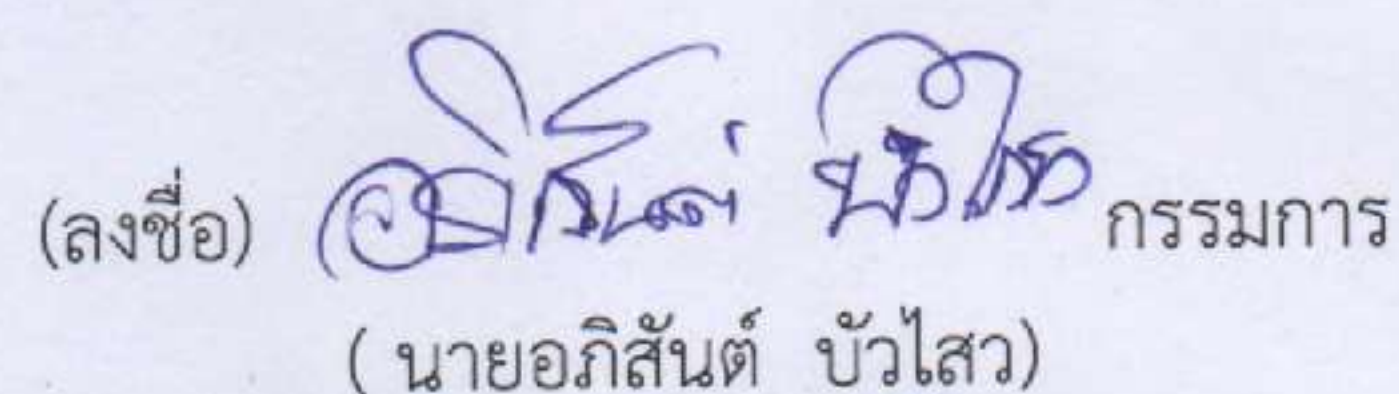 (ลงชื่อ) อภิสันต์ บัวไสว กรรมการ
( นายอภิสันต์ บัวไสว)